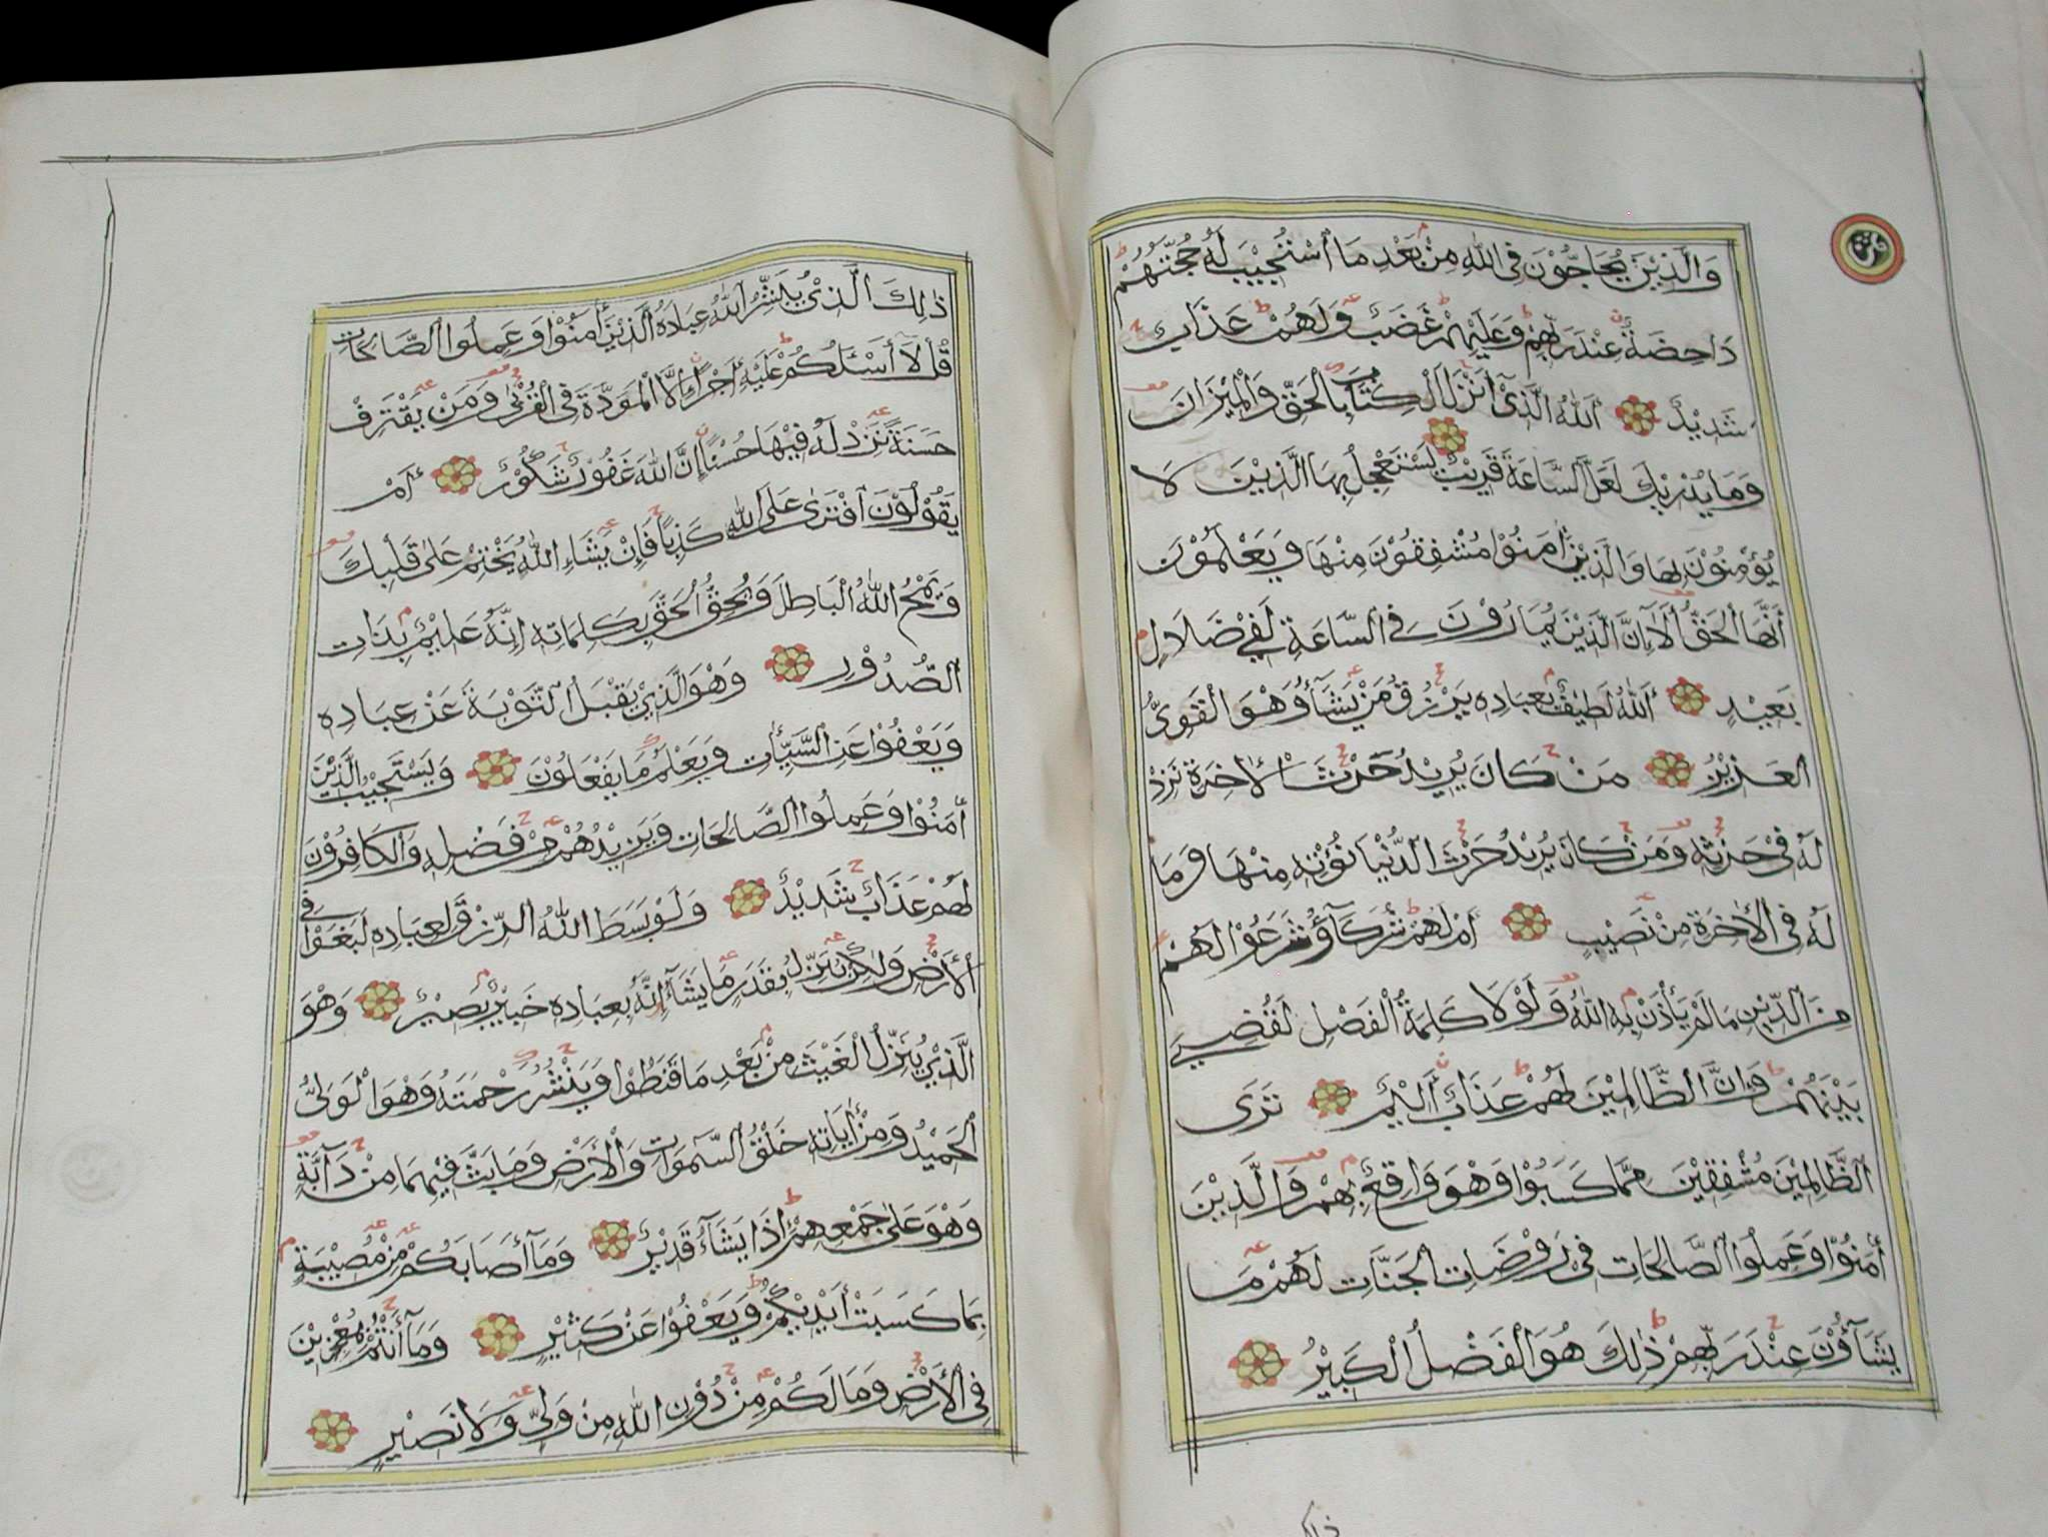 وَالَّذِيْنَ يُحَاجُّوْنَ فِى اللهِ مِنْ بَعْدِ مَا اسْتُجِيْبَ لَهُ حُجَّتُهُمْ
دَاحِضَةٌ عِنْدَ رَبِّهِمْ وَعَلَيْهِمْ غَضَبٌ وَلَهُمْ عَذَابٌ
شَدِيْدٌ اَللهُ الَّذِىْ أَنْزَلَ الْكِتَابَ بِالْحَقِّ وَالْمِيْزَانَ
وَمَا يُدْرِيْكَ لَعَلَّ السَّاعَةَ قَرِيْبٌ يَسْتَعْجِلُ بِهَا الَّذِيْنَ لَا
يُؤْمِنُوْنَ بِهَا وَالَّذِيْنَ اٰمَنُوْا مُشْفِقُوْنَ مِنْهَا وَيَعْلَمُوْنَ
أَنَّهَا الْحَقُّ أَلَآ اِنَّ الَّذِيْنَ يُمَارُوْنَ فِى السَّاعَةِ لَفِيْ ضَلَالٍ
بَعِيْدٍ اَللهُ لَطِيْفٌ بِعِبَادِهِ يَرْزُقُ مَنْ يَشَآءُ وَهْوَ الْقَوِىُّ
الْعَزِيْزُ مَنْ كَانَ يُرِيْدُ حَرْثَ الْاٰخِرَةِ نَزِدْ
لَهُ فِيْ حَرْثِهِ وَمَنْ كَانَ يُرِيْدُ حَرْثَ الدُّنْيَا نُؤْتِهِ مِنْهَا وَمَا
لَهُ فِى الْاٰخِرَةِ مِنْ نَصِيْبٍ أَمْ لَهُمْ شُرَكَآؤُ شَرَعُوْا لَهُمْ
مِنَ الدِّيْنِ مَا لَمْ يَأْذَنْ بِهِ اللهُ وَلَوْلَا كَلِمَةُ الْفَصْلِ لَقُضِيَ
بَيْنَهُمْ وَإِنَّ الظَّالِمِيْنَ لَهُمْ عَذَابٌ أَلِيْمٌ تَرَى
الظَّالِمِيْنَ مُشْفِقِيْنَ مِمَّا كَسَبُوْا وَهْوَ وَاقِعٌ بِهِمْ وَالَّذِيْنَ
اٰمَنُوْا وَعَمِلُوا الصَّالِحَاتِ فِى رَوْضَاتِ الْجَنَّاتِ لَهُمْ مَا
يَشَآؤُنَ عِنْدَ رَبِّهِمْ ذٰلِكَ هُوَ الْفَضْلُ الْكَبِيْرُ
ذٰلِكَ الَّذِىْ يُبَشِّرُ اللهُ عِبَادَهُ الَّذِيْنَ اٰمَنُوْا وَعَمِلُوا الصَّالِحَاتِ
قُلْ لَآ أَسْئَلُكُمْ عَلَيْهِ أَجْرًا إِلَّا الْمَوَدَّةَ فِى الْقُرْبٰى وَمَنْ يَقْتَرِفْ
حَسَنَةً نَزِدْ لَهُ فِيْهَا حُسْنًا إِنَّ اللهَ غَفُوْرٌ شَكُوْرٌ أَمْ
يَقُوْلُوْنَ افْتَرٰى عَلَى اللهِ كَذِبًا فَإِنْ يَشَاءِ اللهُ يَخْتِمْ عَلٰى قَلْبِكَ
وَيَمْحُ اللهُ الْبَاطِلَ وَيُحِقُّ الْحَقَّ بِكَلِمَاتِهِ اِنَّهُ عَلِيْمٌ بِذَاتِ
الصُّدُوْرِ وَهْوَ الَّذِيْ يَقْبَلُ التَّوْبَةَ عَنْ عِبَادِهِ
وَيَعْفُوْا عَنِ السَّيِّاٰتِ وَيَعْلَمُ مَا يَفْعَلُوْنَ وَيَسْتَجِيْبُ الَّذِيْنَ
اٰمَنُوْا وَعَمِلُوا الصَّالِحَاتِ وَيَزِيْدُهُمْ مِنْ فَضْلِهِ وَالْكَافِرُوْنَ
لَهُمْ عَذَابٌ شَدِيْدٌ وَلَوْ بَسَطَ اللهُ الرِّزْقَ لِعِبَادِهِ لَبَغَوْا فِى
الْأَرْضِ وَلٰكِنْ يُنَزِّلُ بِقَدَرٍ مَا يَشَآءُ إِنَّهُ بِعِبَادِهِ خَبِيْرٌ بَصِيْرٌ وَهْوَ
الَّذِيْ يُنَزِّلُ الْغَيْثَ مِنْ بَعْدِ مَا قَنَطُوْا وَيَنْشُرُ رَحْمَتَهُ وَهْوَ الْوَلِىُّ
الْحَمِيْدُ وَمِنْ اٰيَاتِهِ خَلْقُ السَّمٰوَاتِ وَالْأَرْضِ وَمَا بَثَّ فِيْهِمَا مِنْ دَآبَّةٍ
وَهْوَ عَلٰى جَمْعِهِمْ إِذَا يَشَآءُ قَدِيْرٌ وَمَآ أَصَابَكُمْ مِنْ مُصِيْبَةٍ
بِمَا كَسَبَتْ أَيْدِيْكُمْ وَيَعْفُوْا عَنْ كَثِيْرٍ وَمَآ أَنْتُمْ بِمُعْجِزِيْنَ
فِى الْأَرْضِ وَمَا لَكُمْ مِنْ دُوْنِ اللهِ مِنْ وَلِيٍّ وَلَا نَصِيْرٍ
ذلك